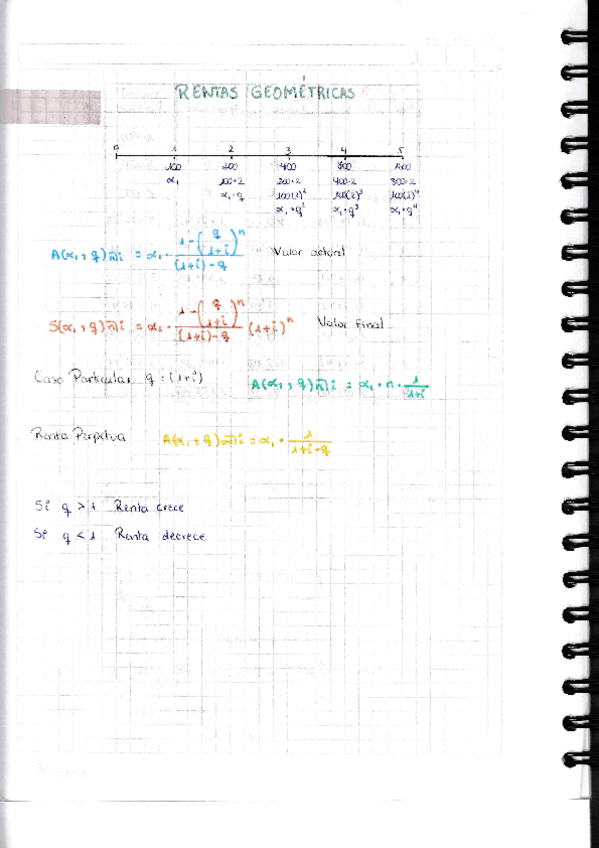 RENTAS GEOMÉTRICAS
0 1 2 3 4 5
100 200 400 800
α₁ 100·2 200·2 400·2 800·2
α₁·q 100(2)² 100(2)³ 100(2)⁴
α₁·q² α₁·q³ α₁·q⁴
A(α₁, q) n¬i = α₁ · (1-(q/(1+i))ⁿ)/((1+i)-q) Valor actual
S(α₁, q) n¬i = α₁ · (1-(q/(1+i))ⁿ)/((1+i)-q) (1+i)ⁿ Valor Final
Caso Particular q = (1+i) A(α₁, q) n¬i = α₁ · n · 1/(1+i)
Renta Perpetua A(α₁, q) ∞¬i = α₁ · 1/(1+i-q)
Si q > 1 Renta crece
Si q < 1 Renta decrece